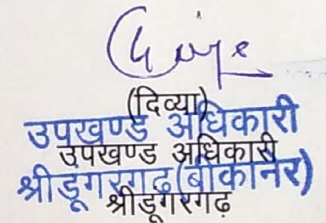 (दिव्या)
उपखण्ड अधिकारी
उपखण्ड अधिकारी
श्रीडूंगरगढ़ (बीकानेर)
श्रीडूंगरगढ़